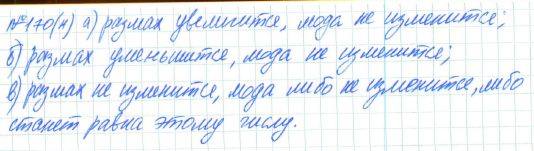 №170(н) а) размах увеличится, мода не изменится;
б) размах уменьшится, мода не изменится;
в) размах не изменится, мода либо не изменится, либо
станет равна этому числу.